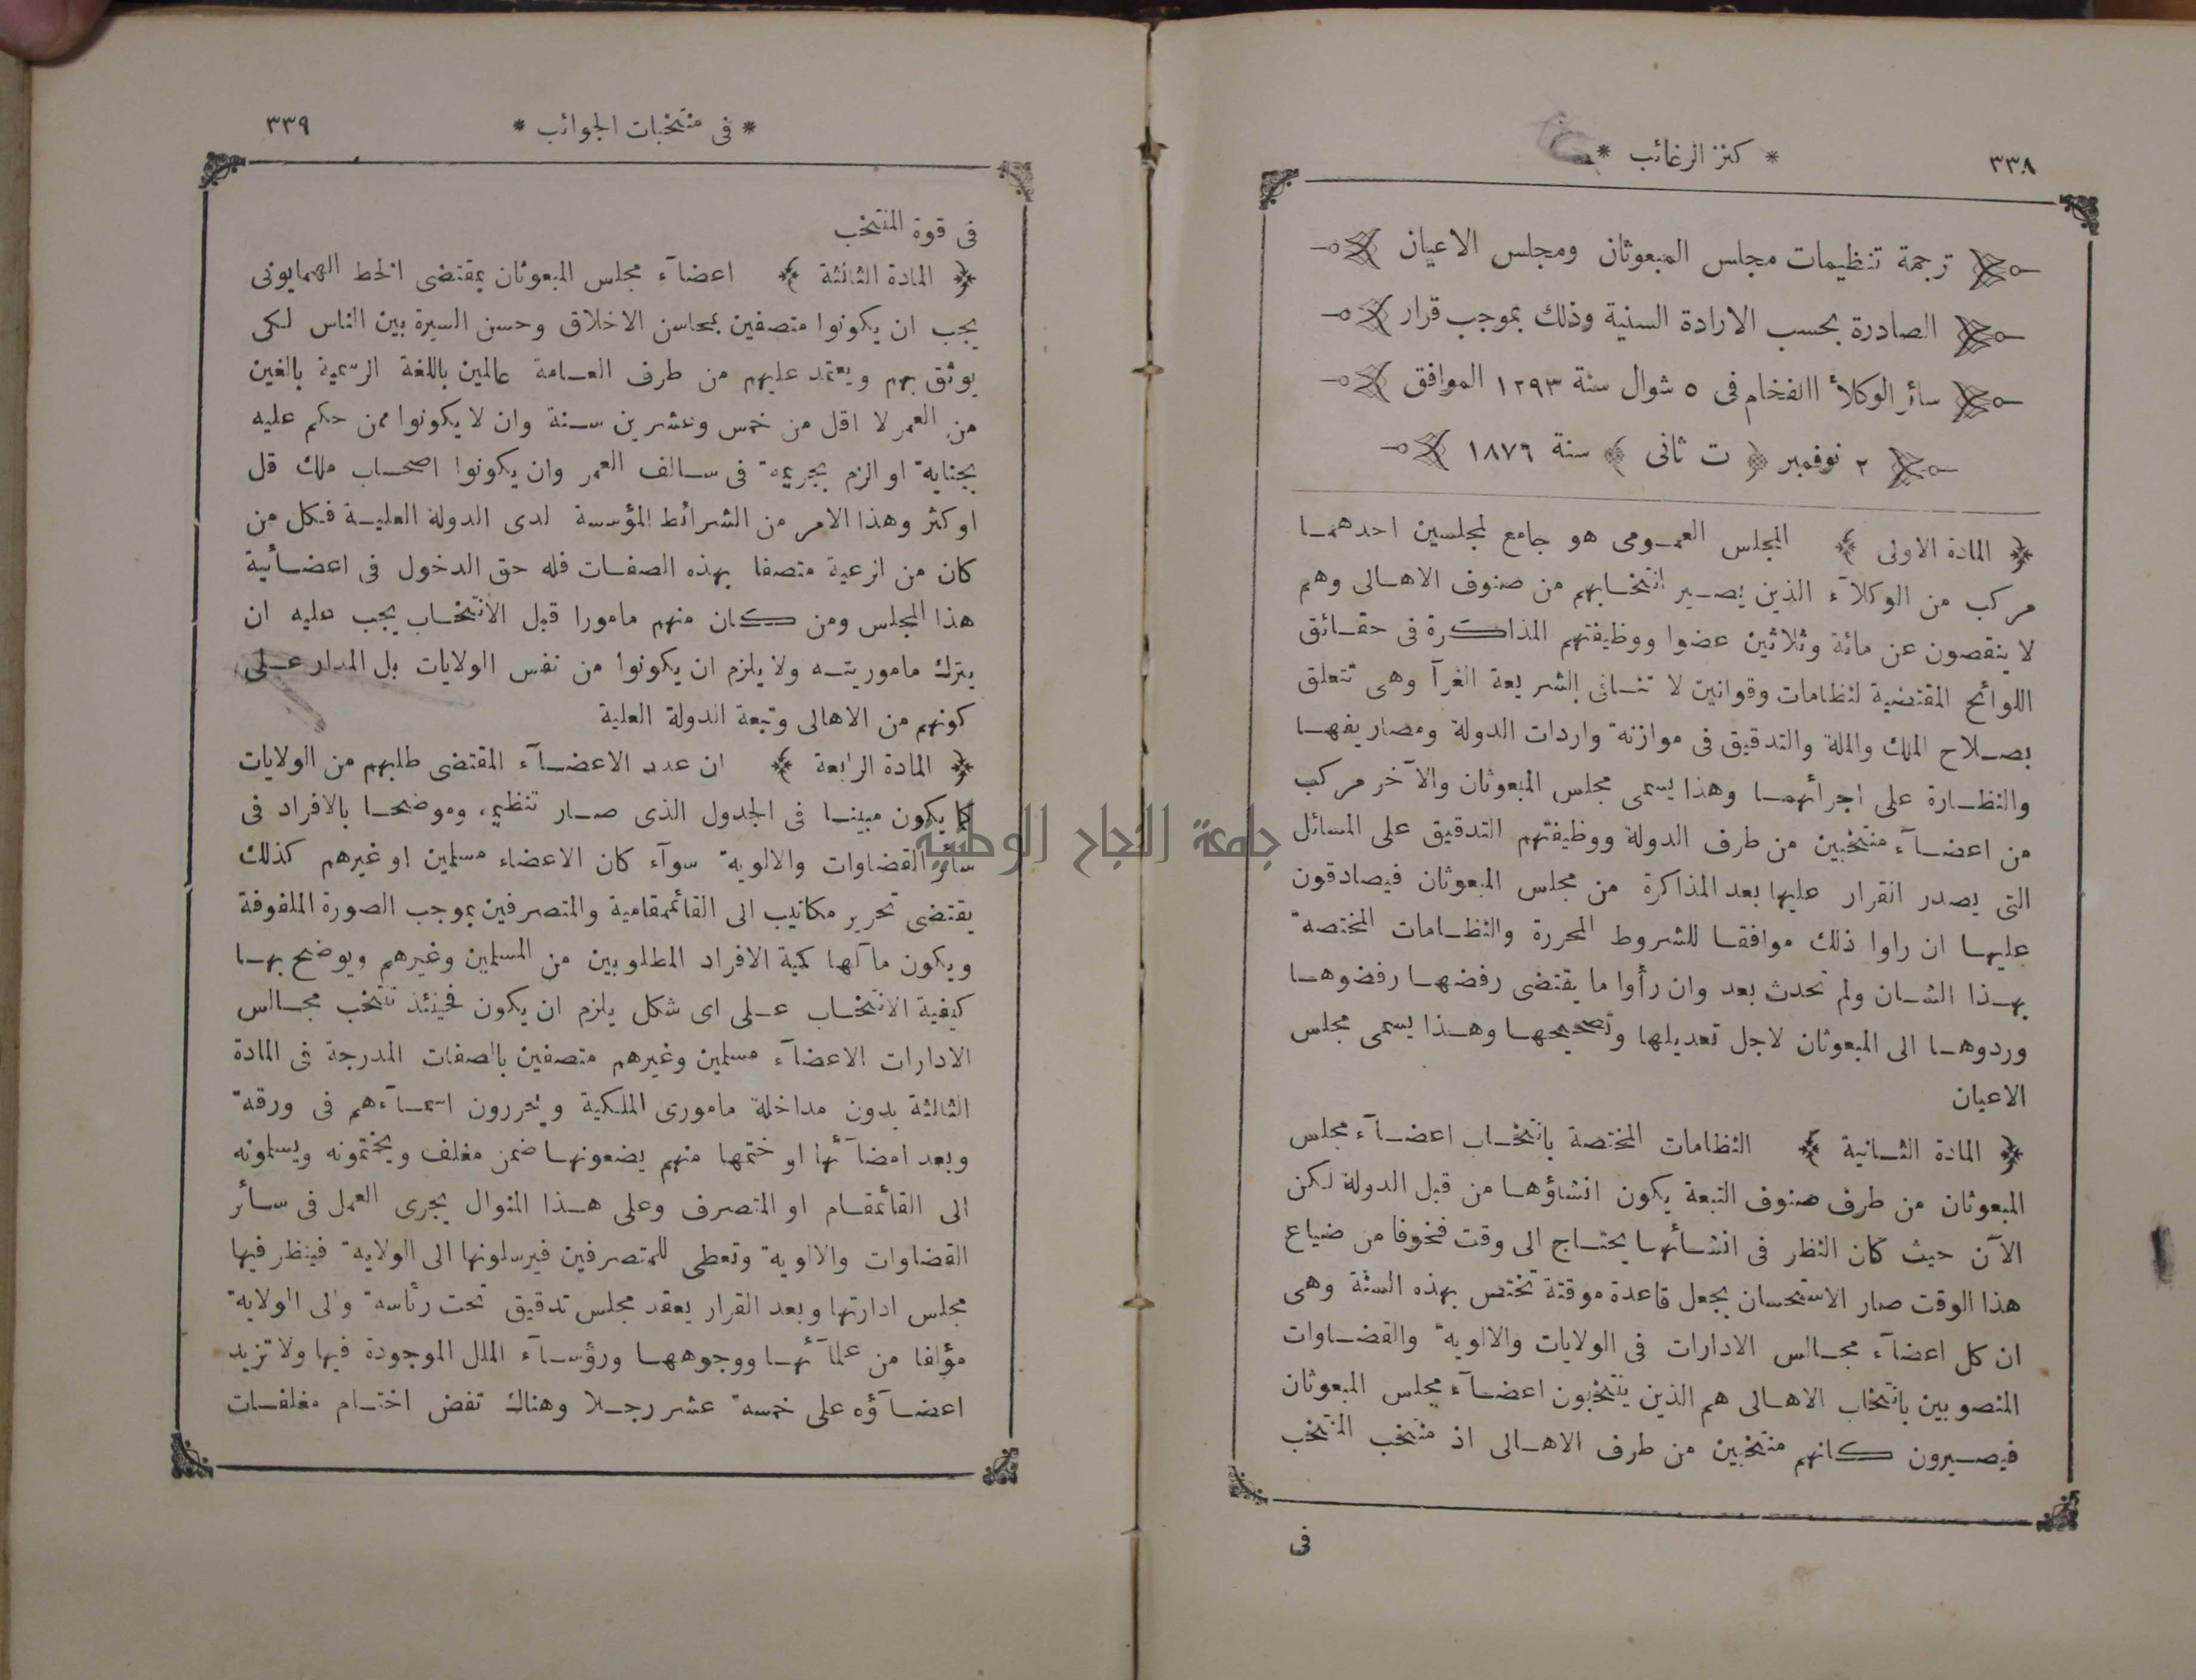 ٣٣٨
* كنز الرغائب *
ترجمة تنظيمات مجلس المبعوثان ومجلس الاعيان
الصادرة بحسب الارادة السنية وذلك بموجب قرار
سائر الوكلاأ الفخام فى ٥ شوال سنة ١٢٩٣ الموافق
٢ نوفمبر ﴿ ت ثانى ﴾ سنة ١٨٧٦
﴿ المادة الاولى ﴾ المجلس العمومى هو جامع لمجلسين احدهما
مركب من الوكلآء الذين يصير انتخابهم من صنوف الاهالى وهم
لا ينقصون عن مائة وثلاثين عضوا ووظيفتهم المذاكرة فى حقائق
اللوائح المقتضية لنظامات وقوانين لا تنافى الشريعة الغرآ وهى تتعلق
بصلاح الملك والملة والتدقيق فى موازنة واردات الدولة ومصاريفها
والنظارة على اجرائهما وهذا يسمى مجلس المبعوثان والآخر مركب
من اعضآء منتخبين من طرف الدولة ووظيفتهم التدقيق على المسائل
التى يصدر القرار عليها بعد المذاكرة من مجلس المبعوثان فيصادقون
عليها ان راوا ذلك موافقا للشروط المحررة والنظامات المختصة
بهذا الشان ولم تحدث بعد وان رأوا ما يقتضى رفضها رفضوها
وردوها الى المبعوثان لاجل تعديلها وتصحيحها وهذا يسمى مجلس
الاعيان
﴿ المادة الثانية ﴾ النظامات المختصة بانتخاب اعضآء مجلس
المبعوثان من طرف صنوف التبعة يكون انشاؤها من قبل الدولة لكن
الآن حيث كان النظر فى انشائها يحتاج الى وقت فخوفا من ضياع
هذا الوقت صار الاستحسان بجعل قاعدة موقتة تختص بهذه السنة وهى
ان كل اعضآء مجالس الادارات فى الولايات والالوية والقضاوات
المنصوبين بانتخاب الاهالى هم الذين ينتخبون اعضآء مجلس المبعوثان
فيصيرون كانهم منتخبين من طرف الاهالى اذ منتخب المنتخب
فى
* فى منتخبات الجوائب *
٣٣٩
فى قوة المنتخب
﴿ المادة الثالثة ﴾ اعضآء مجلس المبعوثان بمقتضى الخط الهمايونى
يجب ان يكونوا متصفين بمحاسن الاخلاق وحسن السيرة بين الناس لكى
يوثق بهم ويعتمد عليهم من طرف العامة عالمين باللغة الرسمية بالغين
من العمر لا اقل من خمس وعشرين سنة وان لا يكونوا ممن حكم عليه
بجناية او الزم بجريمة فى سالف العمر وان يكونوا اصحاب ملك قل
او كثر وهذا الامر من الشرائط المؤسسة لدى الدولة العلية فكل من
كان من الرعية متصفا بهذه الصفات فله حق الدخول فى اعضائية
هذا المجلس ومن كان منهم مامورا قبل الانتخاب يجب عليه ان
يترك ماموريته ولا يلزم ان يكونوا من نفس الولايات بل المدار على
كونهم من الاهالى وتبعة الدولة العلية
﴿ المادة الرابعة ﴾ ان عدد الاعضآء المقتضى طلبهم من الولايات
كما يكون مبينا فى الجدول الذى صار تنظيمه وموضحا بالافراد فى
سائر القضاوات والالوية سوآء كان الاعضاء مسلمين او غيرهم كذلك
يقتضى تحرير مكاتيب الى القائممقامية والمتصرفين بموجب الصورة الملفوفة
ويكون مآلها كمية الافراد المطلوبين من المسلمين وغيرهم ويوضح بها
كيفية الانتخاب على اى شكل يلزم ان يكون فحينئذ تنتخب مجالس
الادارات الاعضآء مسلمين وغيرهم متصفين بالصفات المدرجة فى المادة
الثالثة بدون مداخلة مامورى الملكية ويحررون اسمآءهم فى ورقة
وبعد امضآئها او ختمها منهم يضعونها ضمن مغلف ويختمونه ويسلمونه
الى القائمقام او المتصرف وعلى هذا المنوال يجرى العمل فى سائر
القضاوات والالوية وتعطى للمتصرفين فيرسلونها الى الولاية فينظر فيها
مجلس ادارتها وبعد القرار يعقد مجلس تدقيق تحت رئاسة والى الولاية
مؤلفا من علمآئها ووجوهها ورؤسآء الملل الموجودة فيها ولا تزيد
اعضآؤه على خمسة عشر رجلا وهناك تفض اختام مغلفات
جامعة النجاح الوطنية